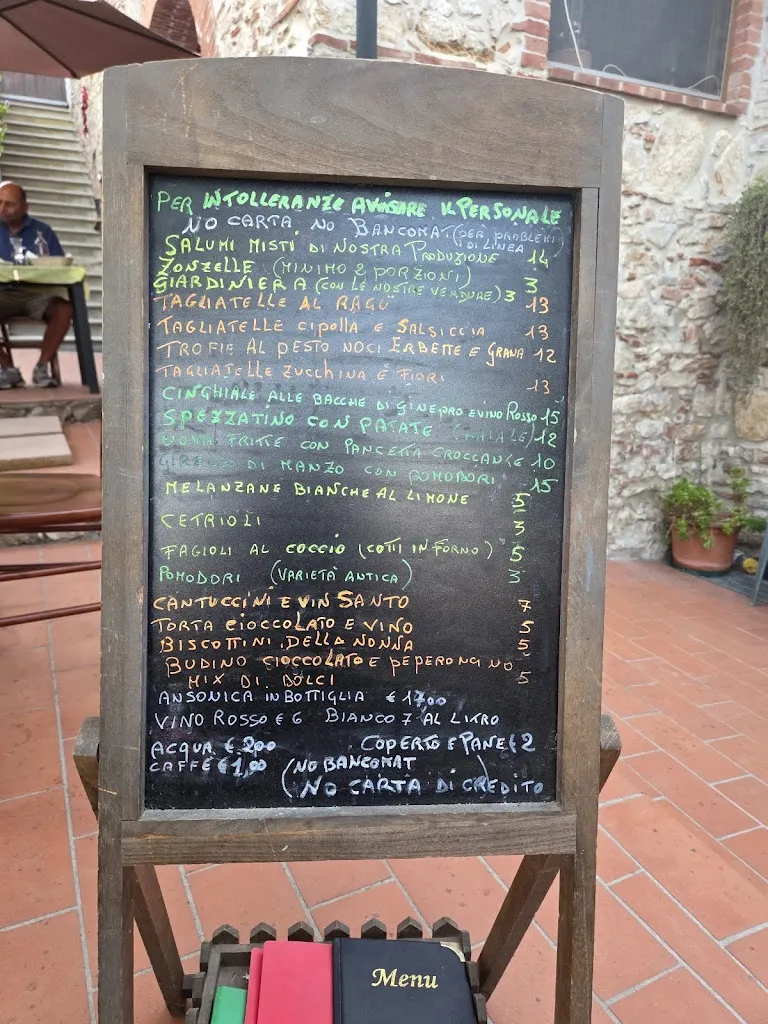 PER INTOLLERANZE AVVISARE IL PERSONALE
NO CARTA NO BANCOMAT (PER PROBLEMI DI LINEA)
SALUMI MISTI DI NOSTRA PRODUZIONE 14
ZONZELLE (MINIMO 2 PORZIONI) 3
GIARDINIERA (CON LE NOSTRE VERDURE) 3
TAGLIATELLE AL RAGÙ 13
TAGLIATELLE CIPOLLA E SALSICCIA 13
TROFIE AL PESTO NOCI ERBETTE E GRANA 12
TAGLIATELLE ZUCCHINA E FIORI 13
CINGHIALE ALLE BACCHE DI GINEPRO E VINO ROSSO 15
SPEZZATINO CON PATATE (MAIALE) 12
UOVA FRITTE CON PANCETTA CROCCANTE 10
GIRELLO DI MANZO CON POMODORI 15
MELANZANE BIANCHE AL LIMONE 5
CETRIOLI 3
FAGIOLI AL COCCIO (COTTI IN FORNO) 5
POMODORI (VARIETÀ ANTICA) 3
CANTUCCINI E VIN SANTO 7
TORTA CIOCCOLATO E VINO 5
BISCOTTINI DELLA NONNA 5
BUDINO CIOCCOLATO E PEPERONCINO
MIX DI DOLCI 5
ANSONICA IN BOTTIGLIA € 17,00
VINO ROSSO € 6 BIANCO 7 AL LITRO
ACQUA € 2,00 COPERTO E PANE € 2
CAFFÈ € 1,00 (NO BANCOMAT
NO CARTA DI CREDITO)
Menu